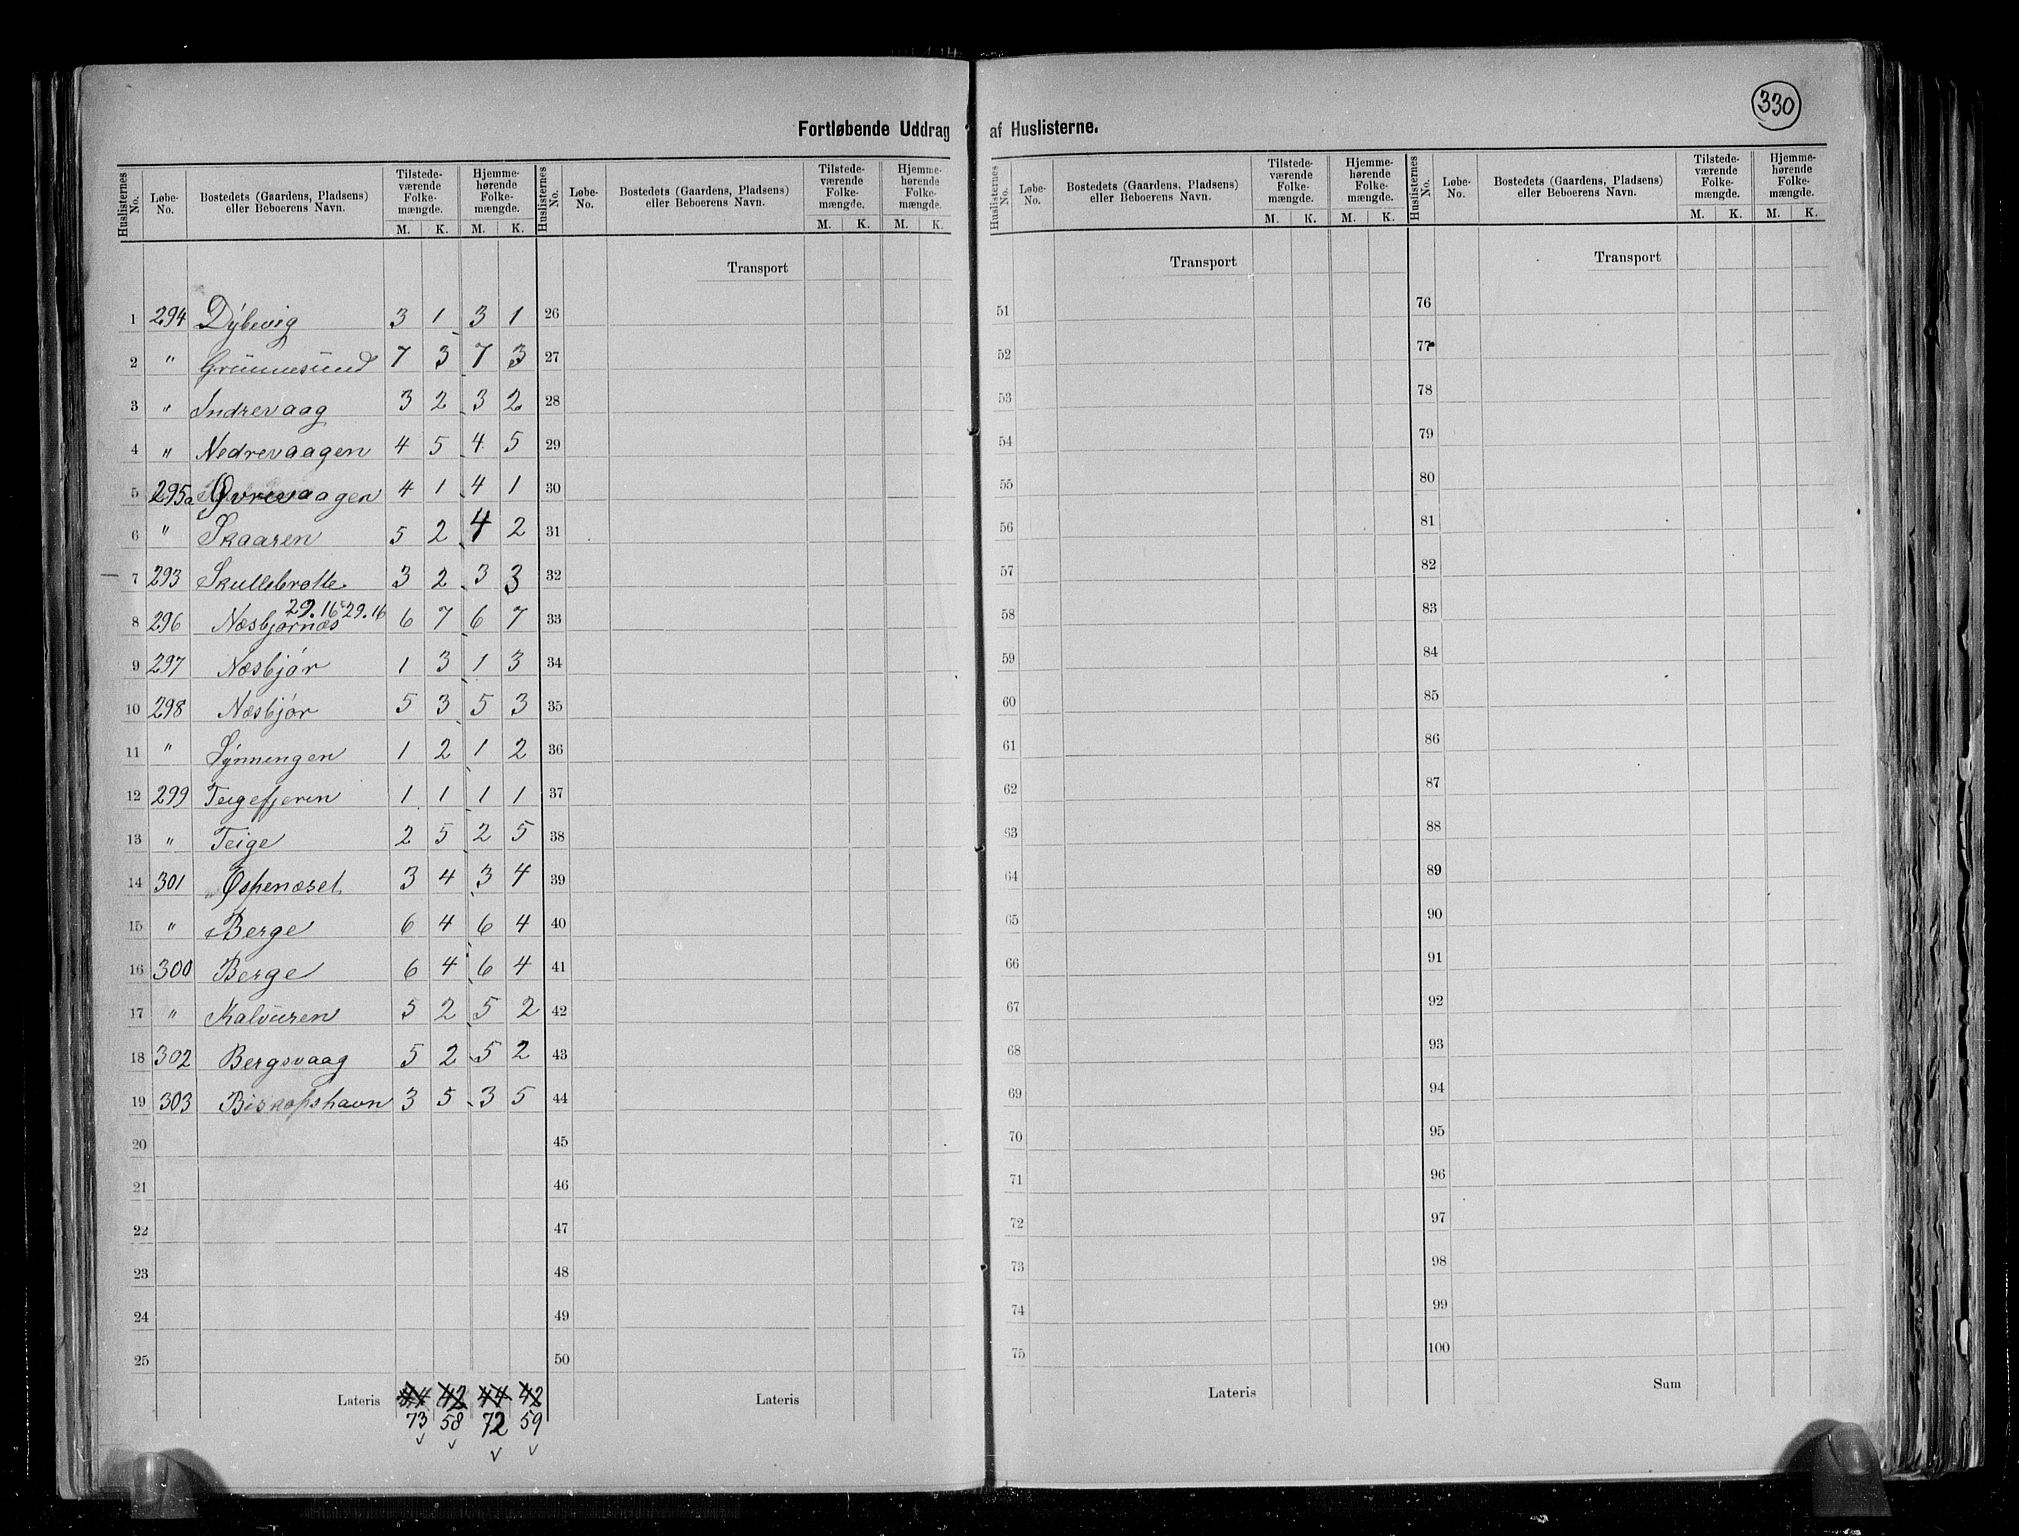 330
Fortløbende Uddrag af Huslisterne.
Huslisternes No. Løbe-No. Bostedets (Gaardens, Pladsens) eller Beboerens Navn. Tilstedeværende Folkemængde. M. K. Hjemmehørende Folkemængde. M. K.
Huslisternes No. Løbe-No. Bostedets (Gaardens, Pladsens) eller Beboerens Navn. Tilstedeværende Folkemængde. M. K. Hjemmehørende Folkemængde. M. K.
Huslisternes No. Løbe-No. Bostedets (Gaardens, Pladsens) eller Beboerens Navn. Tilstedeværende Folkemængde. M. K. Hjemmehørende Folkemængde. M. K.
Huslisternes No. Løbe-No. Bostedets (Gaardens, Pladsens) eller Beboerens Navn. Tilstedeværende Folkemængde. M. K. Hjemmehørende Folkemængde. M. K.
Transport Transport Transport
1 294 Dybevig 3 1 3 1 26 51 76
2 " Grunnesund 7 3 7 3 27 52 77
3 " Indrevaag 3 2 3 2 28 53 78
4 " Nedrevaagen 4 5 4 5 29 54 79
5 295a Øvrevaagen 4 1 4 1 30 55 80
6 " Skaaren 5 2 4 2 31 56 81
7 293 Skullebrotte 3 2 3 3 32 57 82
29.16 29.16
8 296 Næsbjørnæs 6 7 6 7 33 58 83
9 297 Næsbjør 1 3 1 3 34 59 84
10 298 Næsbjør 5 3 5 3 35 60 85
11 " Synningen 1 2 1 2 36 61 86
12 299 Teigefjeren 1 1 1 1 37 62 87
13 " Teige 2 5 2 5 38 63 88
14 301 Espenæset 3 4 3 4 39 64 89
15 " Berge 6 4 6 4 40 65 90
16 300 Berge 6 4 6 4 41 66 91
17 " Kalvuren 5 2 5 2 42 67 92
18 302 Bergsvaag 5 2 5 2 43 68 93
19 303 Biskopshavn 3 5 3 5 44 69 94
20 45 70 95
21 46 71 96
22 47 72 97
23 48 73 98
24 49 74 99
25 50 75 100
Lateris 44 42 44 42 Lateris Lateris Sum
73 58 72 59